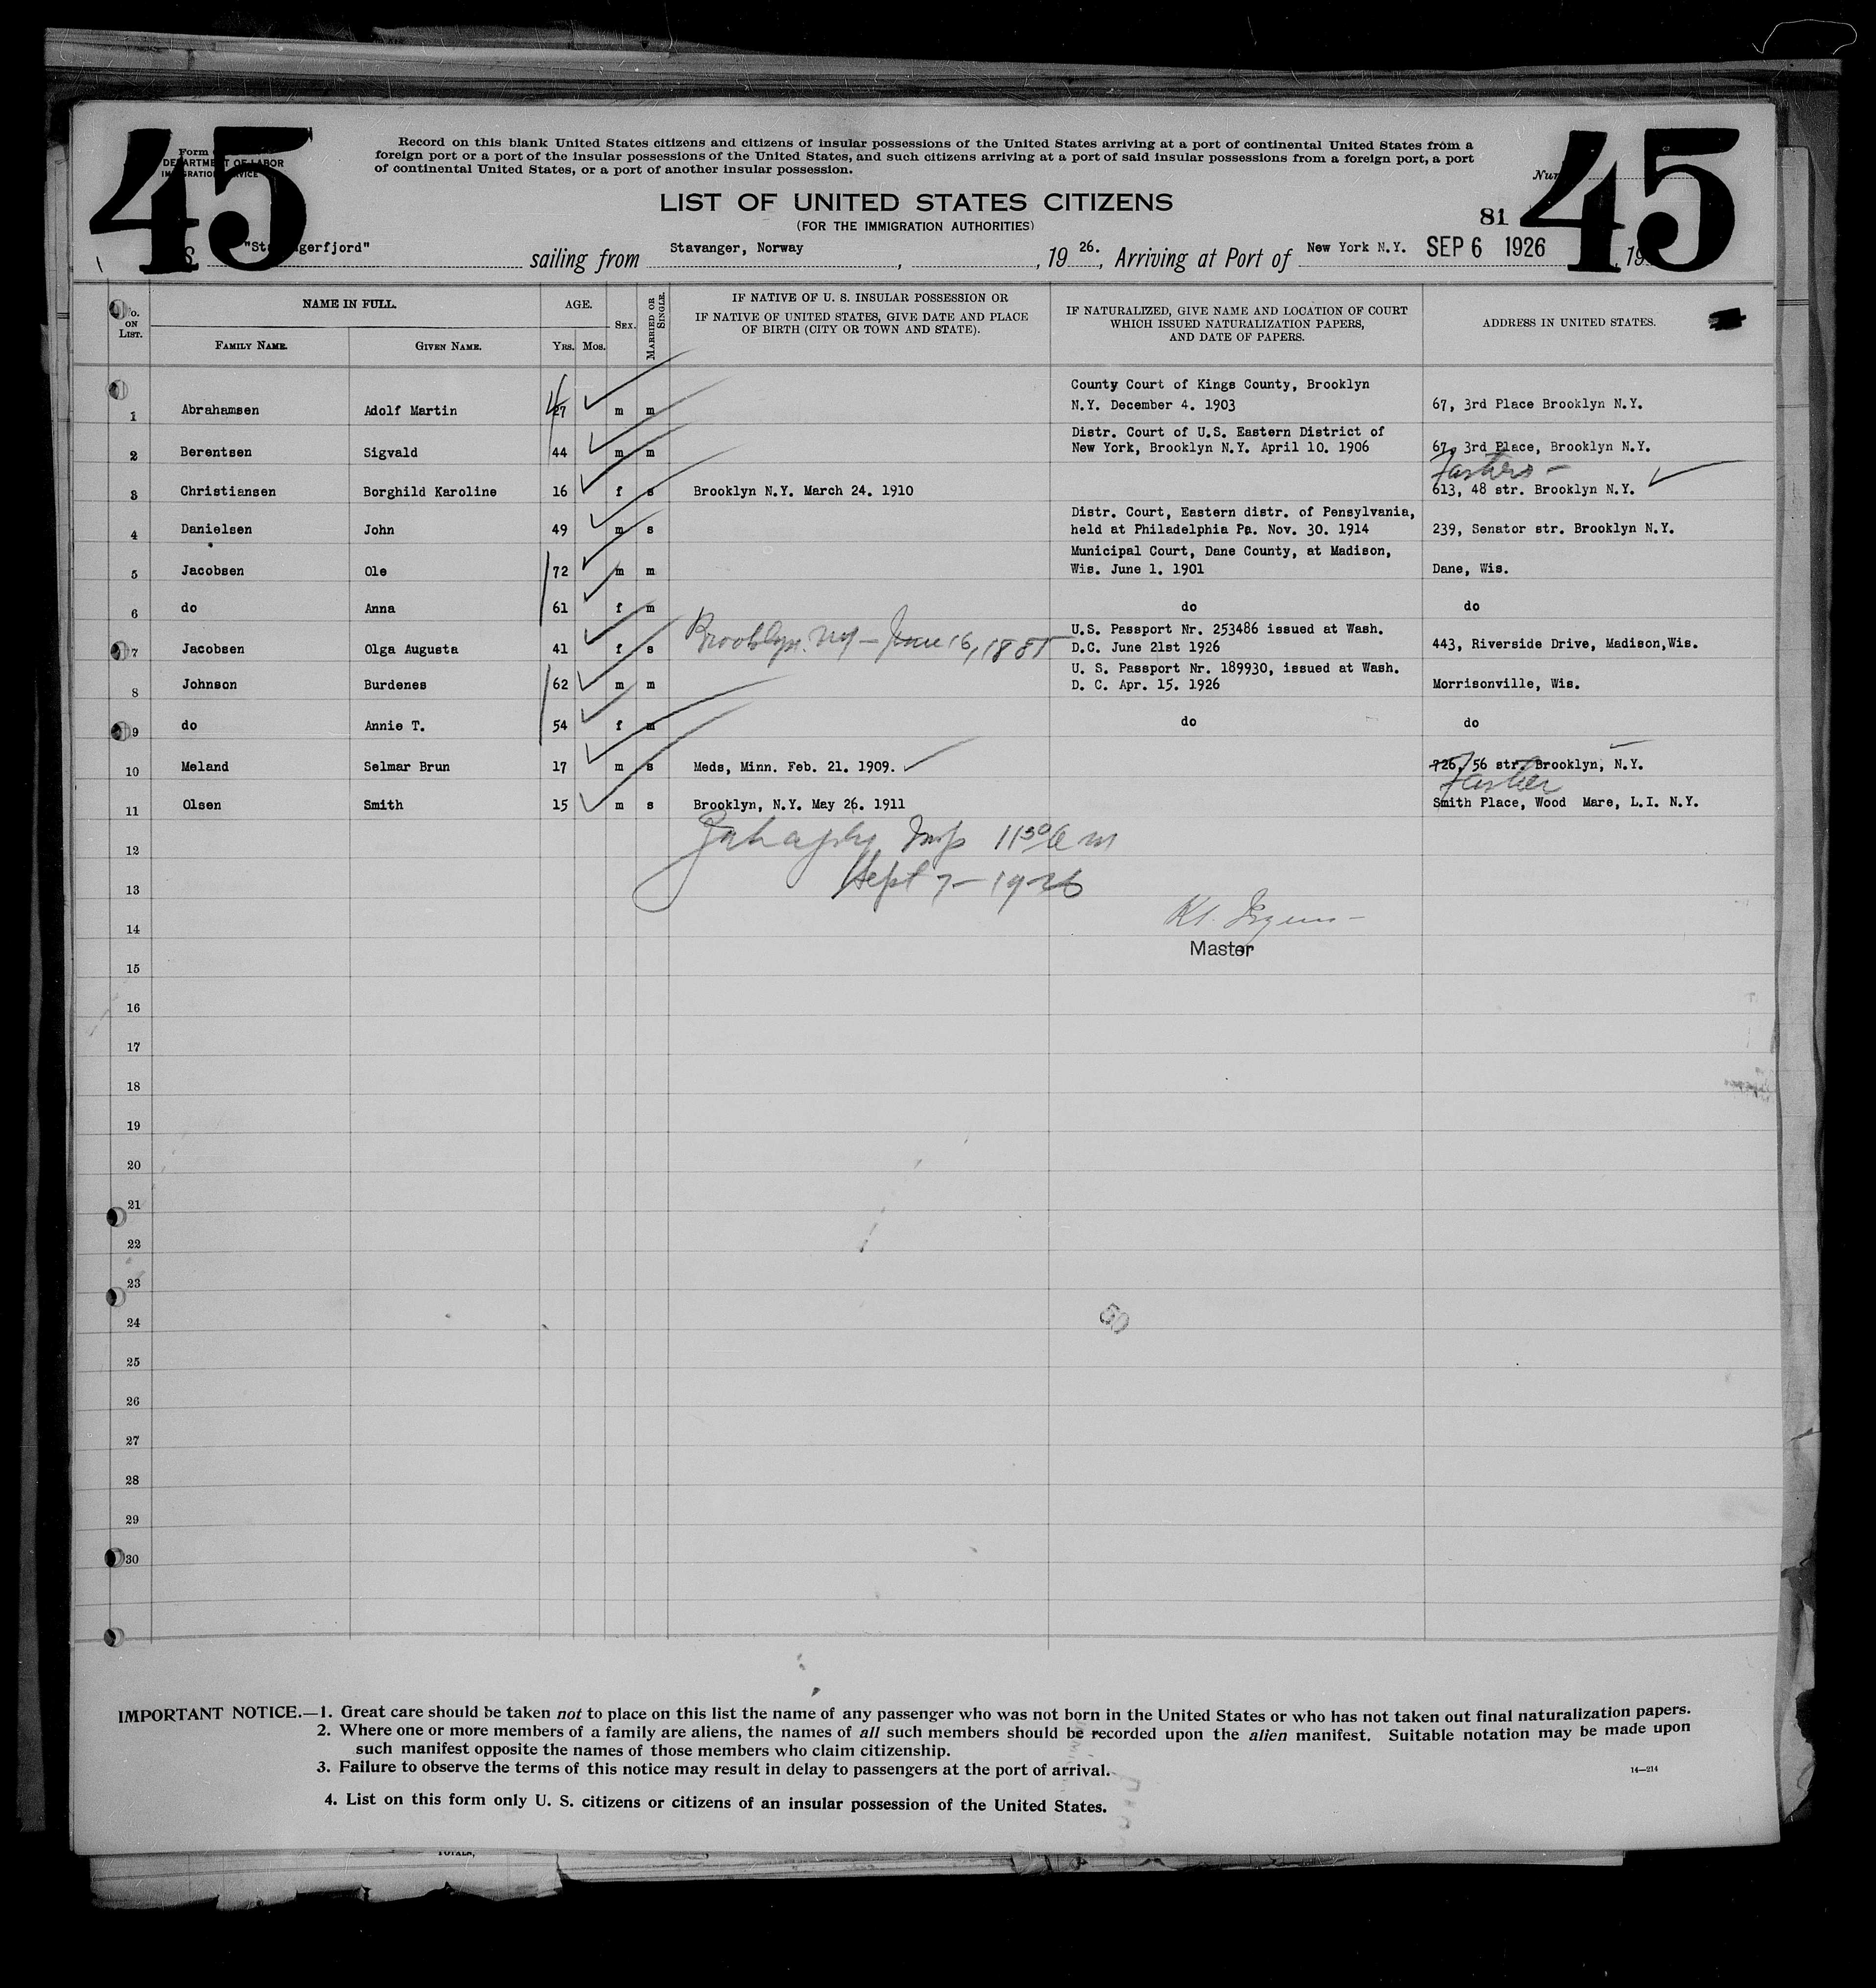 45
45
Form
DEPARTMENT OF LABOR
IMMIGRATION SERVICE
Record on this blank United States citizens and citizens of insular possessions of the United States arriving at a port of continental United States from a
foreign port or a port of the insular possessions of the United States, and such citizens arriving at a port of said insular possessions from a foreign port, a port
of continental United States, or a port of another insular possession.
LIST OF UNITED STATES CITIZENS
(FOR THE IMMIGRATION AUTHORITIES)
81
"Stavangerfjord" sailing from Stavanger, Norway, 1926., Arriving at Port of New York N.Y. SEP 6 1926, 19
No. ON LIST. NAME IN FULL. AGE. SEX. MARRIED OR SINGLE. IF NATIVE OF U. S. INSULAR POSSESSION OR IF NATIVE OF UNITED STATES, GIVE DATE AND PLACE OF BIRTH (CITY OR TOWN AND STATE). IF NATURALIZED, GIVE NAME AND LOCATION OF COURT WHICH ISSUED NATURALIZATION PAPERS, AND DATE OF PAPERS. ADDRESS IN UNITED STATES.
FAMILY NAME. GIVEN NAME. YRS. MOS.
County Court of Kings County, Brooklyn
1 Abrahamsen Adolf Martin 47 m m N.Y. December 4. 1903 67, 3rd Place Brooklyn N.Y.
Distr. Court of U.S. Eastern District of
2 Berentsen Sigvald 44 m m New York, Brooklyn N.Y. April 10. 1906 67, 3rd Place, Brooklyn N.Y.
3 Christiansen Borghild Karoline 16 f s Brooklyn N.Y. March 24. 1910 613, 48 str. Brooklyn N.Y.
Distr. Court, Eastern distr. of Pensylvania,
4 Danielsen John 49 m s held at Philadelphia Pa. Nov. 30. 1914 239, Senator str. Brooklyn N.Y.
Municipal Court, Dane County, at Madison,
5 Jacobsen Ole 72 m m Wis. June 1. 1901 Dane, Wis.
6 do Anna 61 f m do do
U.S. Passport Nr. 253486 issued at Wash.
7 Jacobsen Olga Augusta 41 f s Brooklyn. NY - June 16, 1885 D.C. June 21st 1926 443, Riverside Drive, Madison,Wis.
U. S. Passport Nr. 189930, issued at Wash.
8 Johnson Burdenes 62 m m D. C. Apr. 15. 1926 Morrisonville, Wis.
9 do Annie T. 54 f m do do
10 Meland Selmar Brun 17 m s Meds, Minn. Feb. 21. 1909. 726, 56 str. Brooklyn, N.Y.
Father
11 Olsen Smith 15 m s Brooklyn, N.Y. May 26. 1911 Smith Place, Wood Mare, L.I. N.Y.
12 Insp 11 30 a m
13 Sept 7 - 1926
14
Master
15
16
17
18
19
20
21
22
23
24
50
25
26
27
28
29
30
IMPORTANT NOTICE.—1. Great care should be taken not to place on this list the name of any passenger who was not born in the United States or who has not taken out final naturalization papers.
2. Where one or more members of a family are aliens, the names of all such members should be recorded upon the alien manifest. Suitable notation may be made upon
such manifest opposite the names of those members who claim citizenship.
3. Failure to observe the terms of this notice may result in delay to passengers at the port of arrival.
14—214
4. List on this form only U. S. citizens or citizens of an insular possession of the United States.
TOTALS,